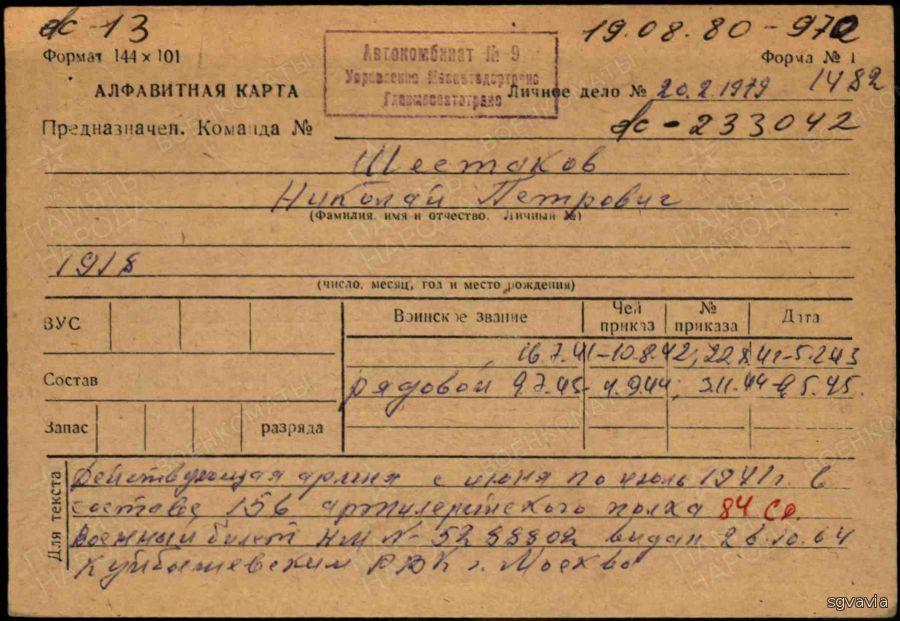 дс-13 19.08.80-970
Формат 144 х 101 Форма № 1
Автокомбинат № 9
Управление Мосавтодортранс
Главмосавтотранс
АЛФАВИТНАЯ КАРТА Личное дело № 20.2.1979 1482
Предназначен. Команда № дс-233042
Шестаков
Николай Петрович
(Фамилия, имя и отчество. Личный №)
1918
(число, месяц, год и место рождения)
ВУС Воинское звание Чей приказ № приказа Дата
16.7.41-10.8.42, 22.8.42-5.2.43
Состав рядовой 9.7.43- 4.9.44, 3.11.44-9.5.45
Запас разряда
Для текста
Действующая армия с июня по июль 1941 г. в
составе 156 артилерийского полка 84 сд.
Военный билет НМ № выдан 26.10.64
Куйбышевским РВК г. Москва
ПАМЯТЬ НАРОДА
ВОЕНКОМАТЫ
sgvavia